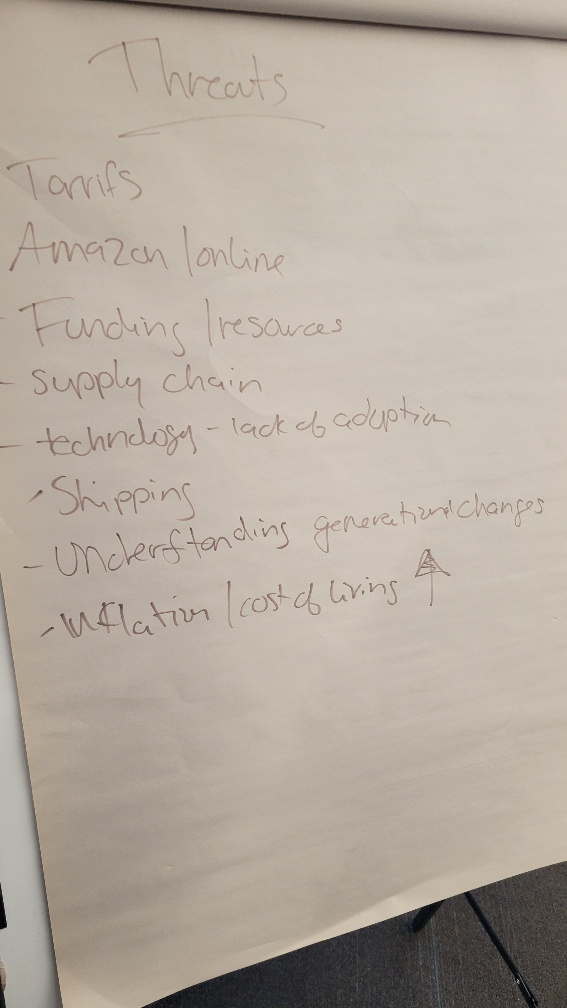 Threats
Tarrifs
Amazon/online
- Funding/resources
- supply chain
- technology - lack of adoption
- Shipping
- Understanding generational changes
- Inflation/cost of living ↑